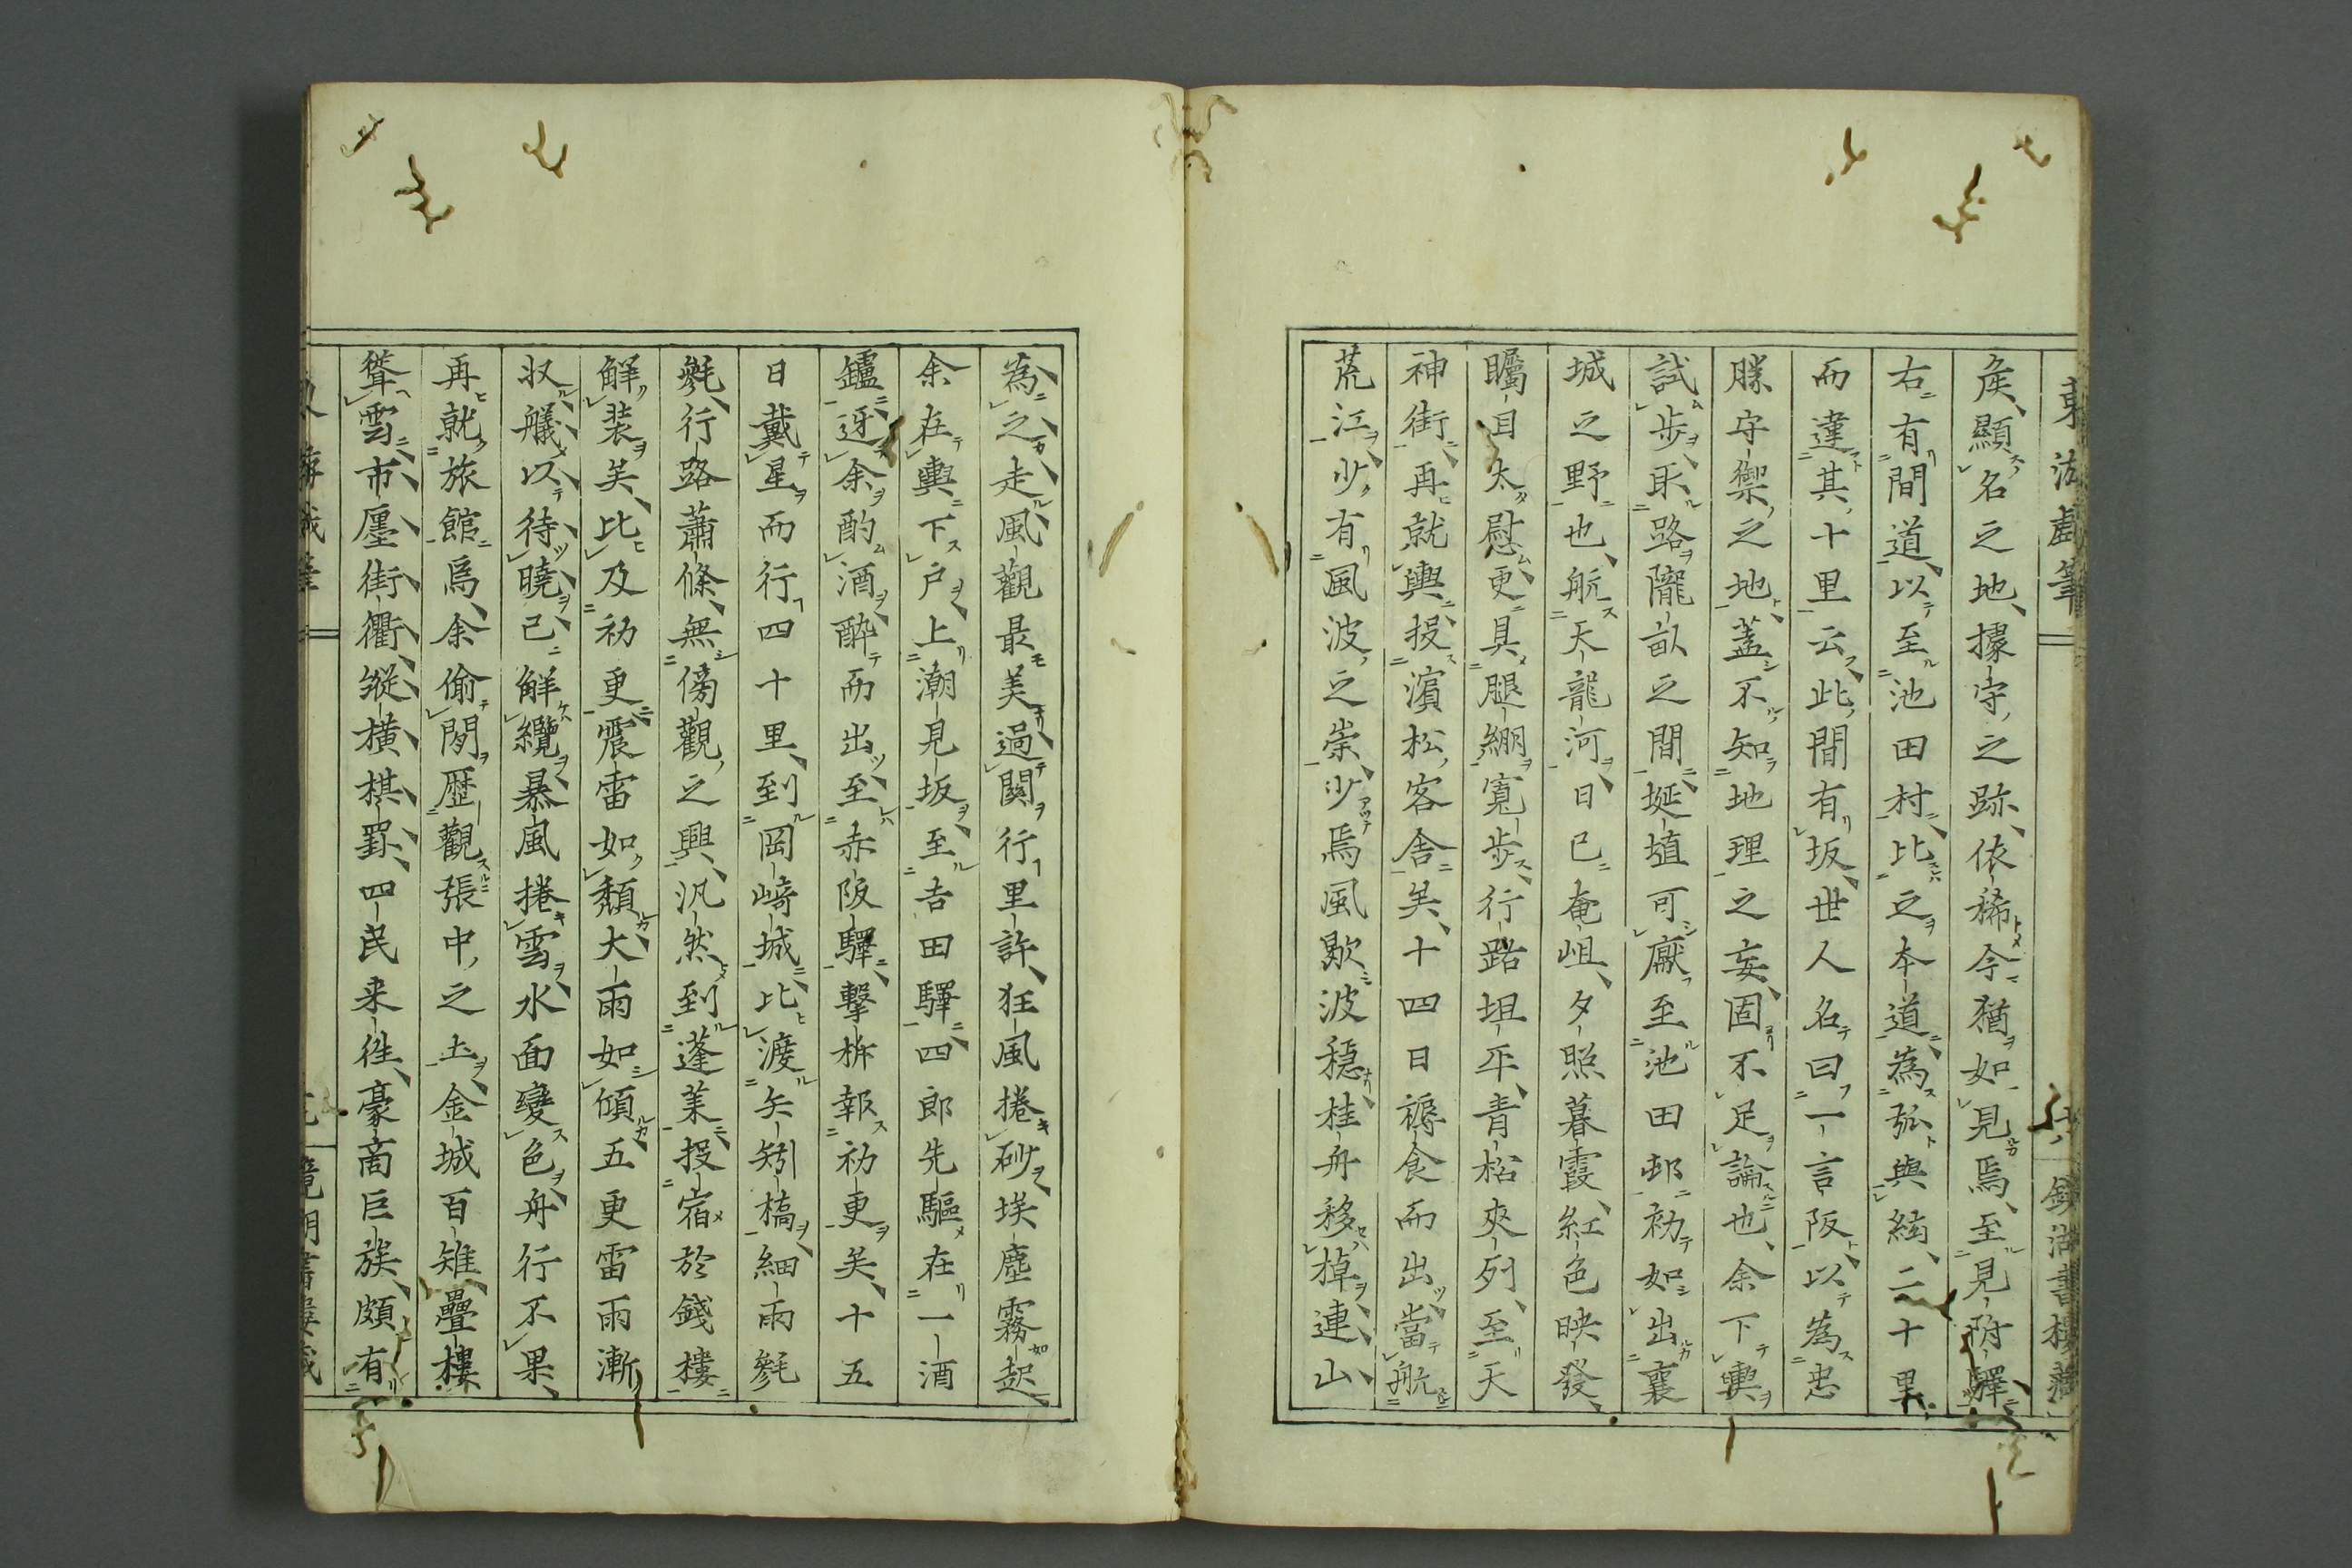 東海戯筆
六
鏡湖書樓藏
侯顯名之地據守之跡依稀今猶如見焉至見附驛
右有間道以至池田村比之本道為弧與絃二十里
而違其十里云此間有坂世人名曰一言阪以為忠
勝守禦之地蓋不知地理之妄固不足論也余下輿
試步取路隴畝之間埏埴可厭至池田邨初如出襄
城之野也航天龍河日已奄岨夕照暮霞紅色映發
矚目太慰更具腿綳寬步行路坦平青松夾列至天
神街再就輿投濱松客舍矣十四日褥食而出當航
荒江少有風波之祟少焉風歇波穏桂舟移棹連山
為之走風觀最美過関行里許狂風捲砂埃塵霧起
余在輿下戶上潮見坂至吉田驛四郎先驅在一酒
鑪迓余酌酒酔而出至赤阪驛擊柝報初更矣十五
日戴星而行四十里到岡崎城比渡矢矧橋細雨毿
毿行路蕭條無傍觀之興汎然到蓬萊投宿於錢樓
解装矣比及初更震雷如頽大雨如傾五更雷雨漸
収艤以待曉已解纜暴風捲雲水面變色舟行不果
再就旅館焉余偷閒歴觀張中之土金城百雉疊樓
聳雲市廛街衢縱橫棋罫四民来往豪商巨族頗有